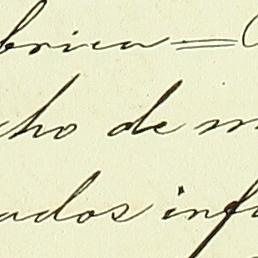 brica = 
cho de m
ados inf